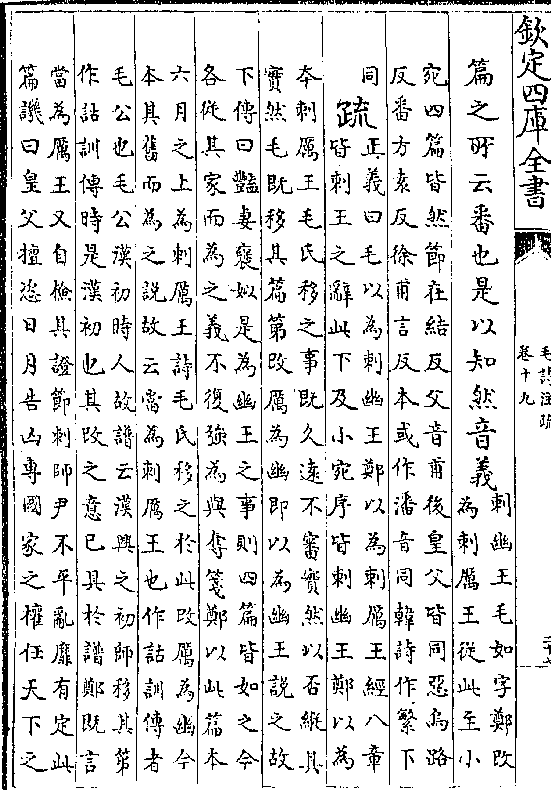 欽定四庫全書
毛詩注疏
卷十九
篇之所云番也是以知然音義
刺幽王毛如字鄭改
為刺厲王從此至小
宛四篇皆然節在結反父音甫後皇父皆同惡烏路
反番方袁反徐甫言反本或作潘音同韓詩作繁下
同
疏
正義曰毛以為刺幽王鄭以為刺厲王經八章
皆刺王之辭此下及小宛序皆刺幽王鄭以為
本刺厲王毛氏移之事既久遠不審實然以否縱其
實然毛既移其篇第改厲為幽即以為幽王說之故
下傳曰豔妻褒姒是為幽王之事則四篇皆如之今
各從其家而為之義不復強為與奪箋鄭以此篇本
六月之上為刺厲王詩毛氏移之於此改厲為幽今
本其舊而為之說故云當為刺厲王也作詁訓傳者
毛公也毛公漢初時人故譜云漢興之初師移其第
作詁訓傳時是漢初也其改之意已具於譜鄭既言
當為厲王又自檢其證節刺師尹不平亂靡有定此
篇譏曰皇父擅恣日月告凶專國家之權任天下之